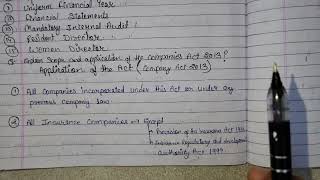 Uniform Financial Year
Financial Statements
Mandatory Internal Audit
Resident Director
Women Director
Explain Scope and application of the Companies Act 2013?
Application of the Act (Company Act 2013)
① All Companies incorporated under this Act or under any
previous Company law
② All Insurance Companies Except
Provision of the Insurance Act
Insurance Regulatory and development
Authority Act 1999